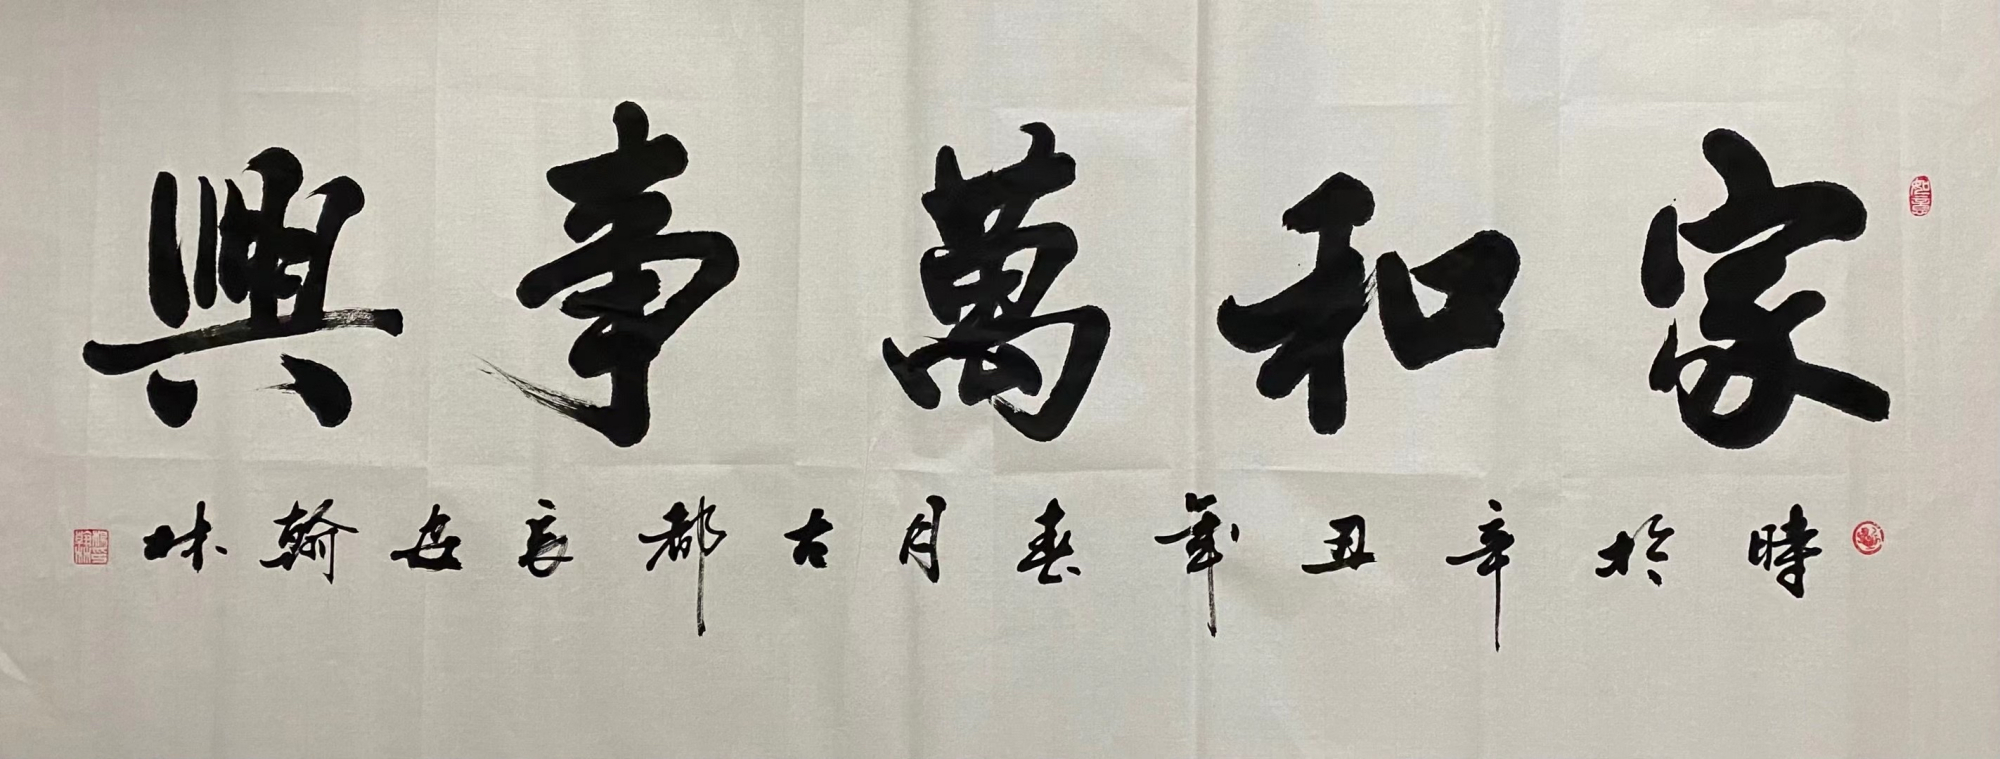 家和萬事興
時於辛丑年春月古都長安翰林